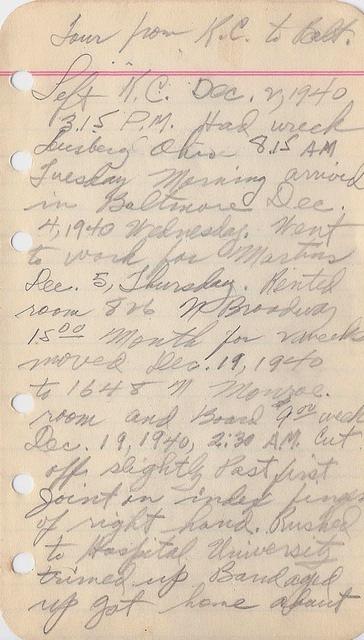 Tour from K.C. to Balt.
Left K.C. Dec. 2, 1940
3.15 P.M. Had wreck
Ohio 8.15 AM
Tuesday Morning arrived
in Baltimore Dec.
4, 1940 Wednesday. Went
to work for Martins
Dec. 5, Thursday. Rented
room 826 N Broadway
15.00 Month for 2 weeks
moved Dec. 19, 1940
to 1648 N Monroe.
room and Board 9.00 week
Dec. 19, 1940, 2:30 A.M. Cut
off slightly Past first
Joint on index finger
of right hand. Rushed
to Hospital University
trimed up Bandaged
up got home about